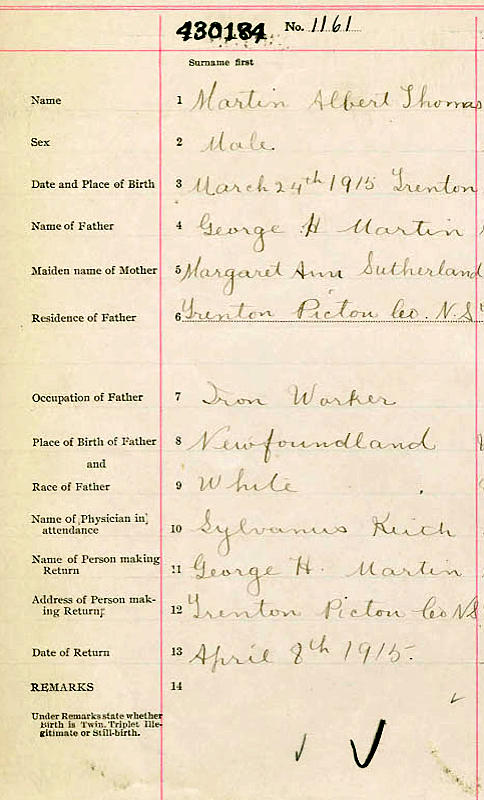 430184 No. 1161
Surname first
Name 1 Martin Albert Thomas
Sex 2 Male.
Date and Place of Birth 3 March 24th 1915 Trenton
Name of Father 4 George H Martin
Maiden name of Mother 5 Margaret Ann Sutherland
Residence of Father 6 Trenton Picton Co. N.S
Occupation of Father 7 Iron Worker
Place of Birth of Father 8 Newfoundland
and
Race of Father 9 White
Name of Physician in
attendance 10 Sylvanus Keith
Name of Person making
Return 11 George H. Martin
Address of Person mak-
ing Return; 12 Trenton Picton Co NS
Date of Return 13 April 8th 1915.
REMARKS 14
Under Remarks state whether
Birth is Twin, Triplet Ille-
gitimate or Still-birth.